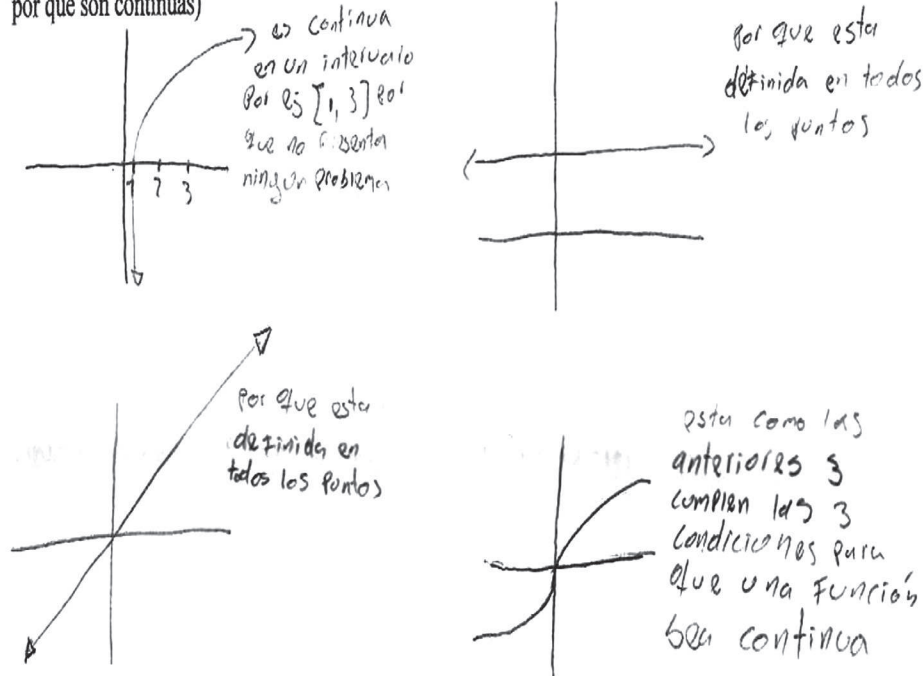 por qué son continuas)
es continua
en un intervalo
Por ej [1, 3] Por
que no
ningun problema
1 2 3
Por que esta
definida en todos
los puntos
Por que esta
definida en
todos los Puntos
esta como las
anteriores 3
cumplen las 3
condiciones para
que una Función
sea continua